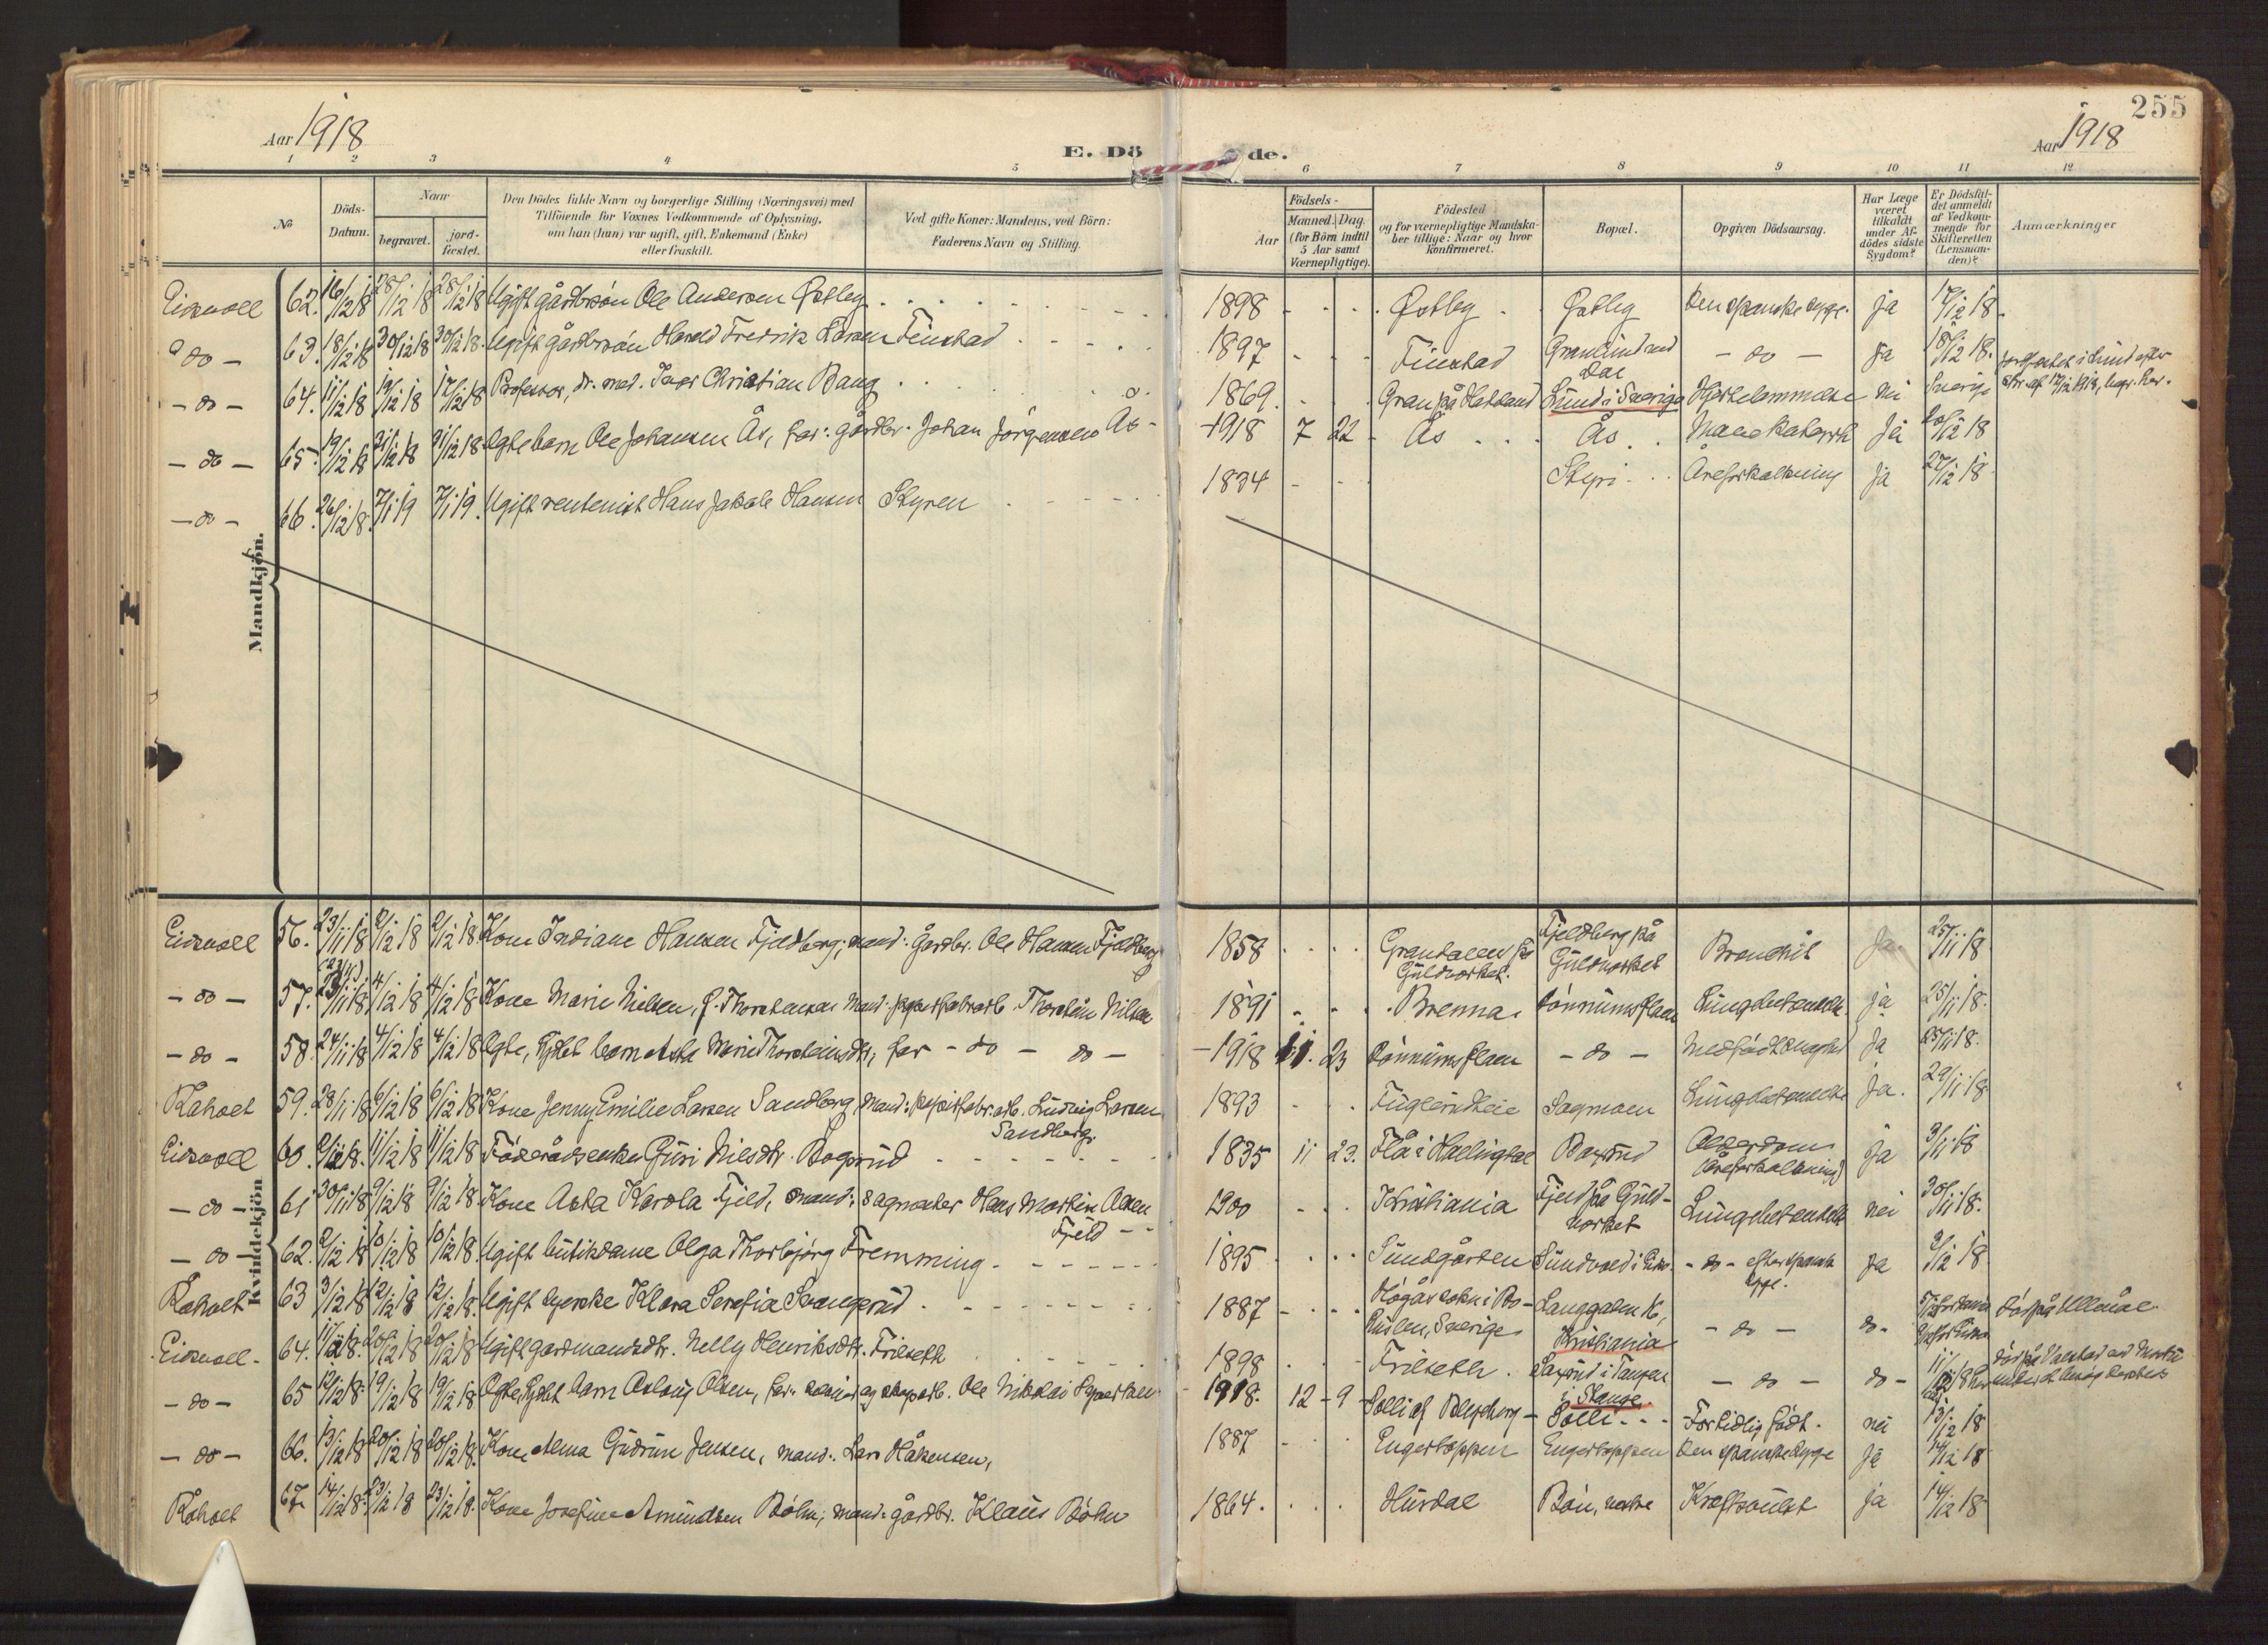 255
Aar 1918
E. Dö
de.
Aar 1918
1 2 3 4 5 6 7 8 9 10 11 12
№
Döds-
Datum.
Naar
begravet.
jord-
fæstet.
Den Dödes fulde Navn og borgerlige Stilling (Næringsvei) med
Tilföiende for Voxnes Vedkommende af Oplysning,
om han (hun) var ugift, gift, Enkemand (Enke)
eller fraskilt.
Ved gifte Koner: Mandens, ved Börn:
Faderens Navn og Stilling.
Aar
Födsels-
Maaned. Dag.
(for Börn indtil
5 Aar samt
Værnepligtige).
Födested
og for værnepligtige Mandska-
ber tillige: Naar og hvor
Konfirmeret.
Bopæl.
Opgiven Dödsaarsag.
Har Læge
været
tilkaldt
under Af-
dödes sidste
Sygdom?
Er Dödsfal-
det anmeldt
af Vedkom-
mende for
Skifteretten
(Lensman-
den)?
Anmærkninger
Mandkjön.
Eidsvoll 62. 16/12 18 28/12 18 28/12 18 Ugift gårdbrsön Ole Andersen Østby 1898 Østby Østby Den spanske syge. ja 17/12 18.
- do - 63. 18/12 18 30/12 18 30/12 18. Ugift gårdbrsön Harald Fredrik Larsen Finstad 1897 Finstad Dal - do - ja 18/12 18.
- do - 64. 11/12 18 19/12 18 17/12 18 Professor, dr. med. Ivar Christian Bang 1869. Gran på Hadeland Lund i Sverige Hjertelammelse nei Sverige jordfæstet i Lund efter
- do - 65. 19/12 18 21/12 18 21/12 18 Ægte barn Ole Johansen Ås, far: gårdbr. Johan Jörgensen Ås - 1918 7 22 Ås Ås Mavekatarrh ja 20/12 18
- do - 66. 26/12 18. 7/1 19 7/1 19. Ugift rentenist Hans Jakob Hansen Styren 1834 Styri Åreforkalkning ja 27/12 18.
Kvindekjön
Eidsvoll 56. 23/11 18 2/12 18 2/12 18 Kone Indiane Hansen Fjeldberg; mand: Gårdbr. Ole Hansen Fjeldberg 1858 Grandalen på Guldverket. Fjeldberg på Guldverket Bronchit ja 25/11 18
- do - 57. 4/12 18 4/12 18 Kone Marie Nilsen, f. Thorstensen mand: papirfabrarb. Thorstein Nilsen 1891 Brenna Lungebetændelse ja 25/11 18.
- do - 58. 24/11 18 4/12 18 4/12 18 Ægte, barn Asta Marie Thorsteinsdtr, far - do - do - 1918 11. 23 - do - Medfödt svaghet ja 25/11 18.
Råholt 59. 28/11 18 6/12 18 6/12 18 Kone Jenny Emilie Larsen Sandberg mand: papirfabr.arb. Ludvig Larsen Sandberg. 1893 Sagmoen Lungebetændelse ja. 29/11 18.
Eidsvoll 60. 2/12 18. 11/12 18 11/12 18 Föderådsenke Guri Nilsdtr. Bögsrud 1835 11 23. Flå i Hallingdal Alderdom (Åreforkalkning) ja
- do - 61 30/11 18 9/12 18 9/12 18 Kone Asta Karola Fjeld, mand: sagmester Hans Martin Olsen Fjeld - - 1900 Kristiania Fjeld på Guld- verket Lungebetændelse nei 30/11 18.
- do - 62. 2/12 18 10/12 18 10/12 18. Ugift butikdame Olga Thorbjörg Fremming 1895 Sundgården - do - efter spansk syge. ja 2/12 18
Råholt 63 3/12 18 12/12 18 12/12 18. Ugift syerske Klara Serafia Svangsrud 1887 Sverige Langgaten 16, Kristiania - do - do - död på Ullevål
Eidsvoll - 64. 20/12 18 20/12 18 Ugift gardmandsdtr. Nelly Henriksdtr. Frilseth 1898 Frilseth i Tangen i Stange. - do - do -
- do - 65 12/12 18. 19/12 18 19/12 18 Ægte, barn Aslaug Olsen, Ole Nikolai 1918. 12 - 9 Solli Fortidlig födt. nei 13/12 18
- do - 66. 13/12 18 20/12 18 20/12 18. Kone Alma Gudrun Jensen, mand: Lars Håkensen, 1887 Engerboppen Engerboppen Den spanske syge ja 14/12 18
Råholt 67. 14/12 18. 23/12 18 23/12 18. Kone Josefine Amundsen Böhn; mand: gårdbr. Klaus Böhn 1864. Hurdal Bön, Kræftsvulst ja 14/12 18